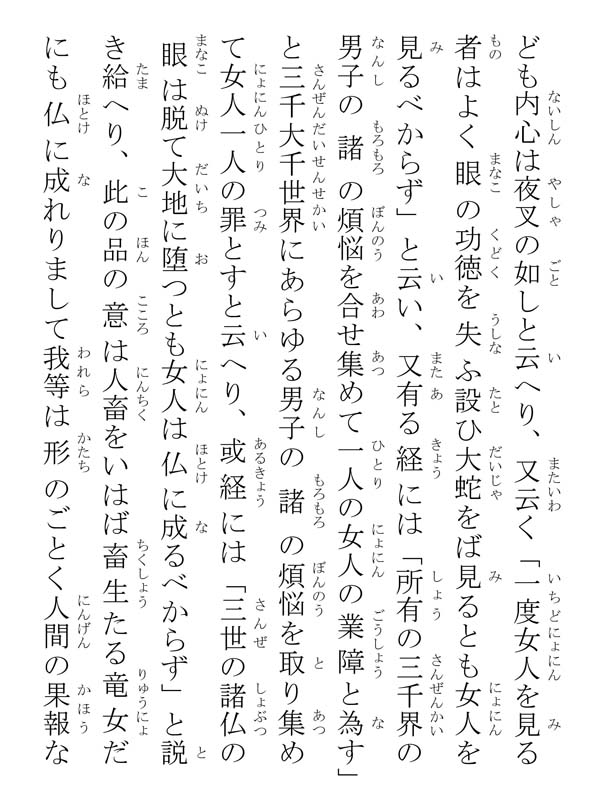 ども内心は夜叉の如しと云へり、又云く「一度女人を見る
者はよく眼の功徳を失ふ設ひ大蛇をば見るとも女人を
見るべからず」と云い、又有る経には「所有の三千界の
男子の諸の煩悩を合せ集めて一人の女人の業障と為す」
と三千大千世界にあらゆる男子の諸の煩悩を取り集め
て女人一人の罪とすと云へり、或経には「三世の諸仏の
眼は脱て大地に堕つとも女人は仏に成るべからず」と説
き給へり、此の品の意は人畜をいはば畜生たる竜女だ
にも仏に成れりまして我等は形のごとく人間の果報な